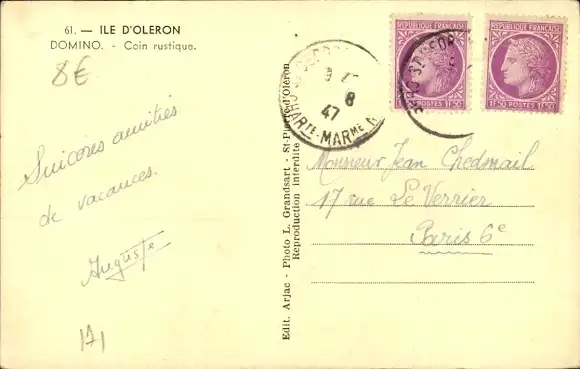 61. — ILE D'OLERON
DOMINO. - Coin rustique.
8€
Sincères amitiés
de vacances.
Auguste
171
Edit. Arjac - Photo L. Grandsart - St-Pierre d'Oléron
Reproduction interdite
8
47
RÉPUBLIQUE FRANÇAISE
POSTES 1F50
RÉPUBLIQUE FRANÇAISE
1F50 POSTES 1F50
Monsieur Jean Chedmail
17 rue Le Verrier
Paris 6e